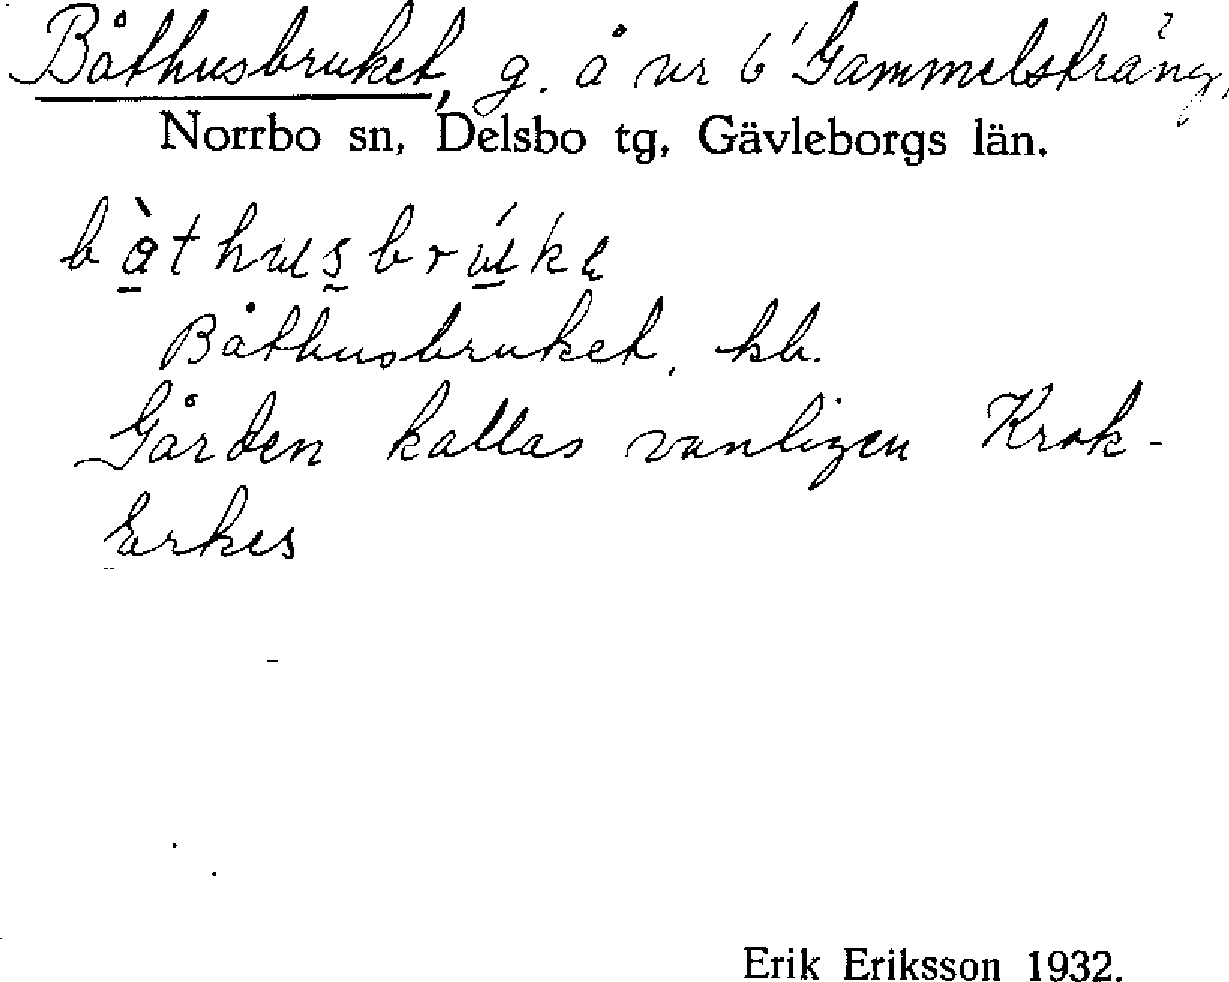 Båthusbruket, g. å nr 6 Gammelsträng,
Norrbo sn, Delsbo tg, Gävleborgs län.
bàthusbrúkε
Båthusbruket, kb.
Gården kallas vanligen Krok-
Erkes
Erik Eriksson 1932.